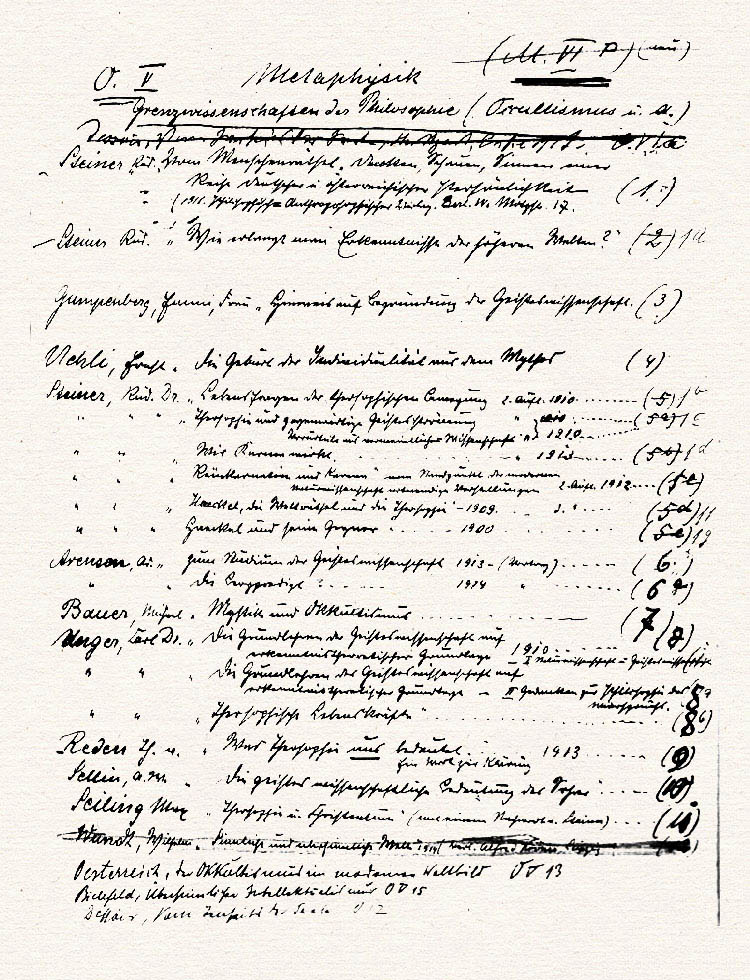 O. V Metaphysik (M. VI P) (neu)
Grenzwissenschaften der Philosophie (Occultismus u. a.)
Dessoir, Vom Jenseits der Seele, O. V 12
Steiner Rud. „Vom Menschenrätsel. Denken, Schauen, Sinnen einer
" Reihe deutscher u. österreichischer Persönlichkeiten (1.)
Anthroposophischer Berl. W. Motzstr. 17.
Steiner Rud. „Wie erlangt man Erkenntnisse der höheren Welten?" (2) 1a
Gumppenberg, Emmi, Frau „Hinweis auf Begründung der Geisteswissenschaft. (3)
Uehli, Ernst „Die Geburt der Individualität aus dem Mythos (4)
Steiner, Rud. Dr. „Lebensfragen der theosophischen Bewegung 2. Aufl. 1910 (5) 1b
" " " „Theosophie und gegenwärtige Geistesströmung " (5a) 1c
Vorurteile aus vermeintlicher Wissenschaft " 1910
" " „Wie Karma wirkt. 1910 (5b) 1d
" " „Reinkarnation und Karma" vom Standpunkte der modernen
Naturwissenschaft notwendige Vorstellungen 2. Aufl. 1912 (5c)
" " " „Haeckel, die Welträtsel und die Theosophie – 1909. 2. " (5d) 1f
" " " Haeckel und seine Gegner " 1900 (5e) 1g
Arenson, Ad. „ zum Studium der Geisteswissenschaft 1913 – (Vortrag) (6.)
" " Die Bergpredigt 1914 " (6a)
Bauer, Michael „ Mystik und Okkultismus (7)
Unger, Carl Dr. „Die Grundlehren der Geisteswissenschaft auf (8)
erkenntnistheoretischer Grundlage 1910 – I Naturwissenschaft u. Geisteswissenschaft
" " Die Grundlehren der Geisteswissenschaft auf
erkenntnistheoretischer Grundlage – II Gedanken zur Philosophie des 8a
" " „Theosophische Lebenskräfte" (8b)
Reden Th. v. „ Was Theosophie uns bedeutet 1913 (9)
Ein Wort zur Klärung
Sellin, A. W. „ Die geisteswissenschaftliche Bedeutung des Sohar (10)
Seiling Max „Theosophie u. Christentum" (mit einem Nachwort v. Steiner) (11)
Wundt, Wilhelm „Sinnliche und übersinnliche Welt 1914 Verl. Alfred Kröner Leipzig
Oesterreich, der Okkultismus im modernen Weltbild O V 13
Bielefeld, Übersinnlicher Intellektualismus O V 15
Dessoir, Vom Jenseits der Seele V 12